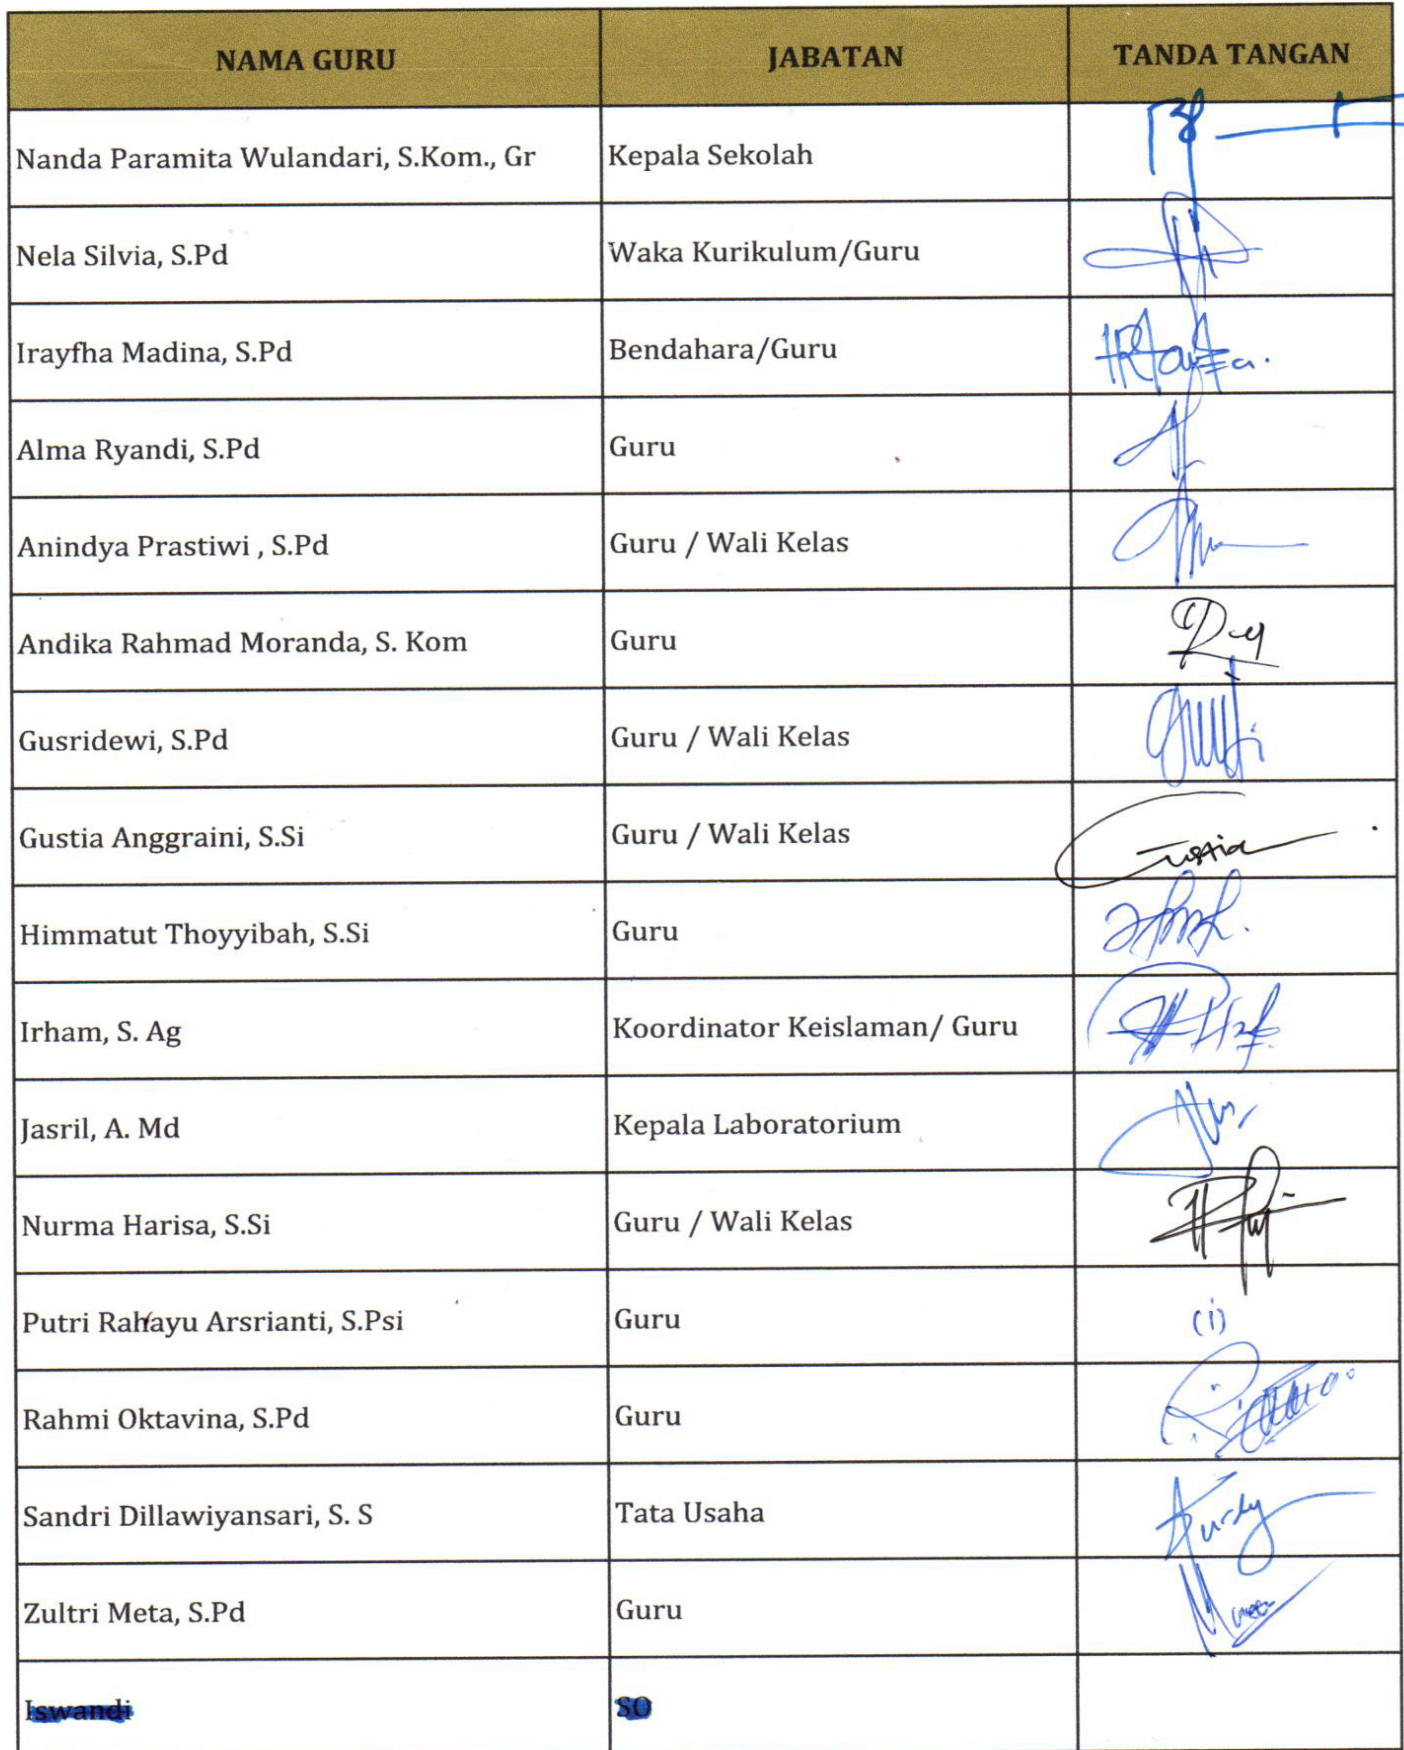 NAMA GURU JABATAN TANDA TANGAN
Nanda Paramita Wulandari, S.Kom., Gr Kepala Sekolah
Nela Silvia, S.Pd Waka Kurikulum/Guru
Irayfha Madina, S.Pd Bendahara/Guru
Alma Ryandi, S.Pd Guru
Anindya Prastiwi , S.Pd Guru / Wali Kelas
Andika Rahmad Moranda, S. Kom Guru
Gusridewi, S.Pd Guru / Wali Kelas
Gustia Anggraini, S.Si Guru / Wali Kelas
Himmatut Thoyyibah, S.Si Guru
Irham, S. Ag Koordinator Keislaman/ Guru
Jasril, A. Md Kepala Laboratorium
Nurma Harisa, S.Si Guru / Wali Kelas
Putri Rahayu Arsrianti, S.Psi Guru (i)
Rahmi Oktavina, S.Pd Guru
Sandri Dillawiyansari, S. S Tata Usaha
Zultri Meta, S.Pd Guru
Iswandi SO